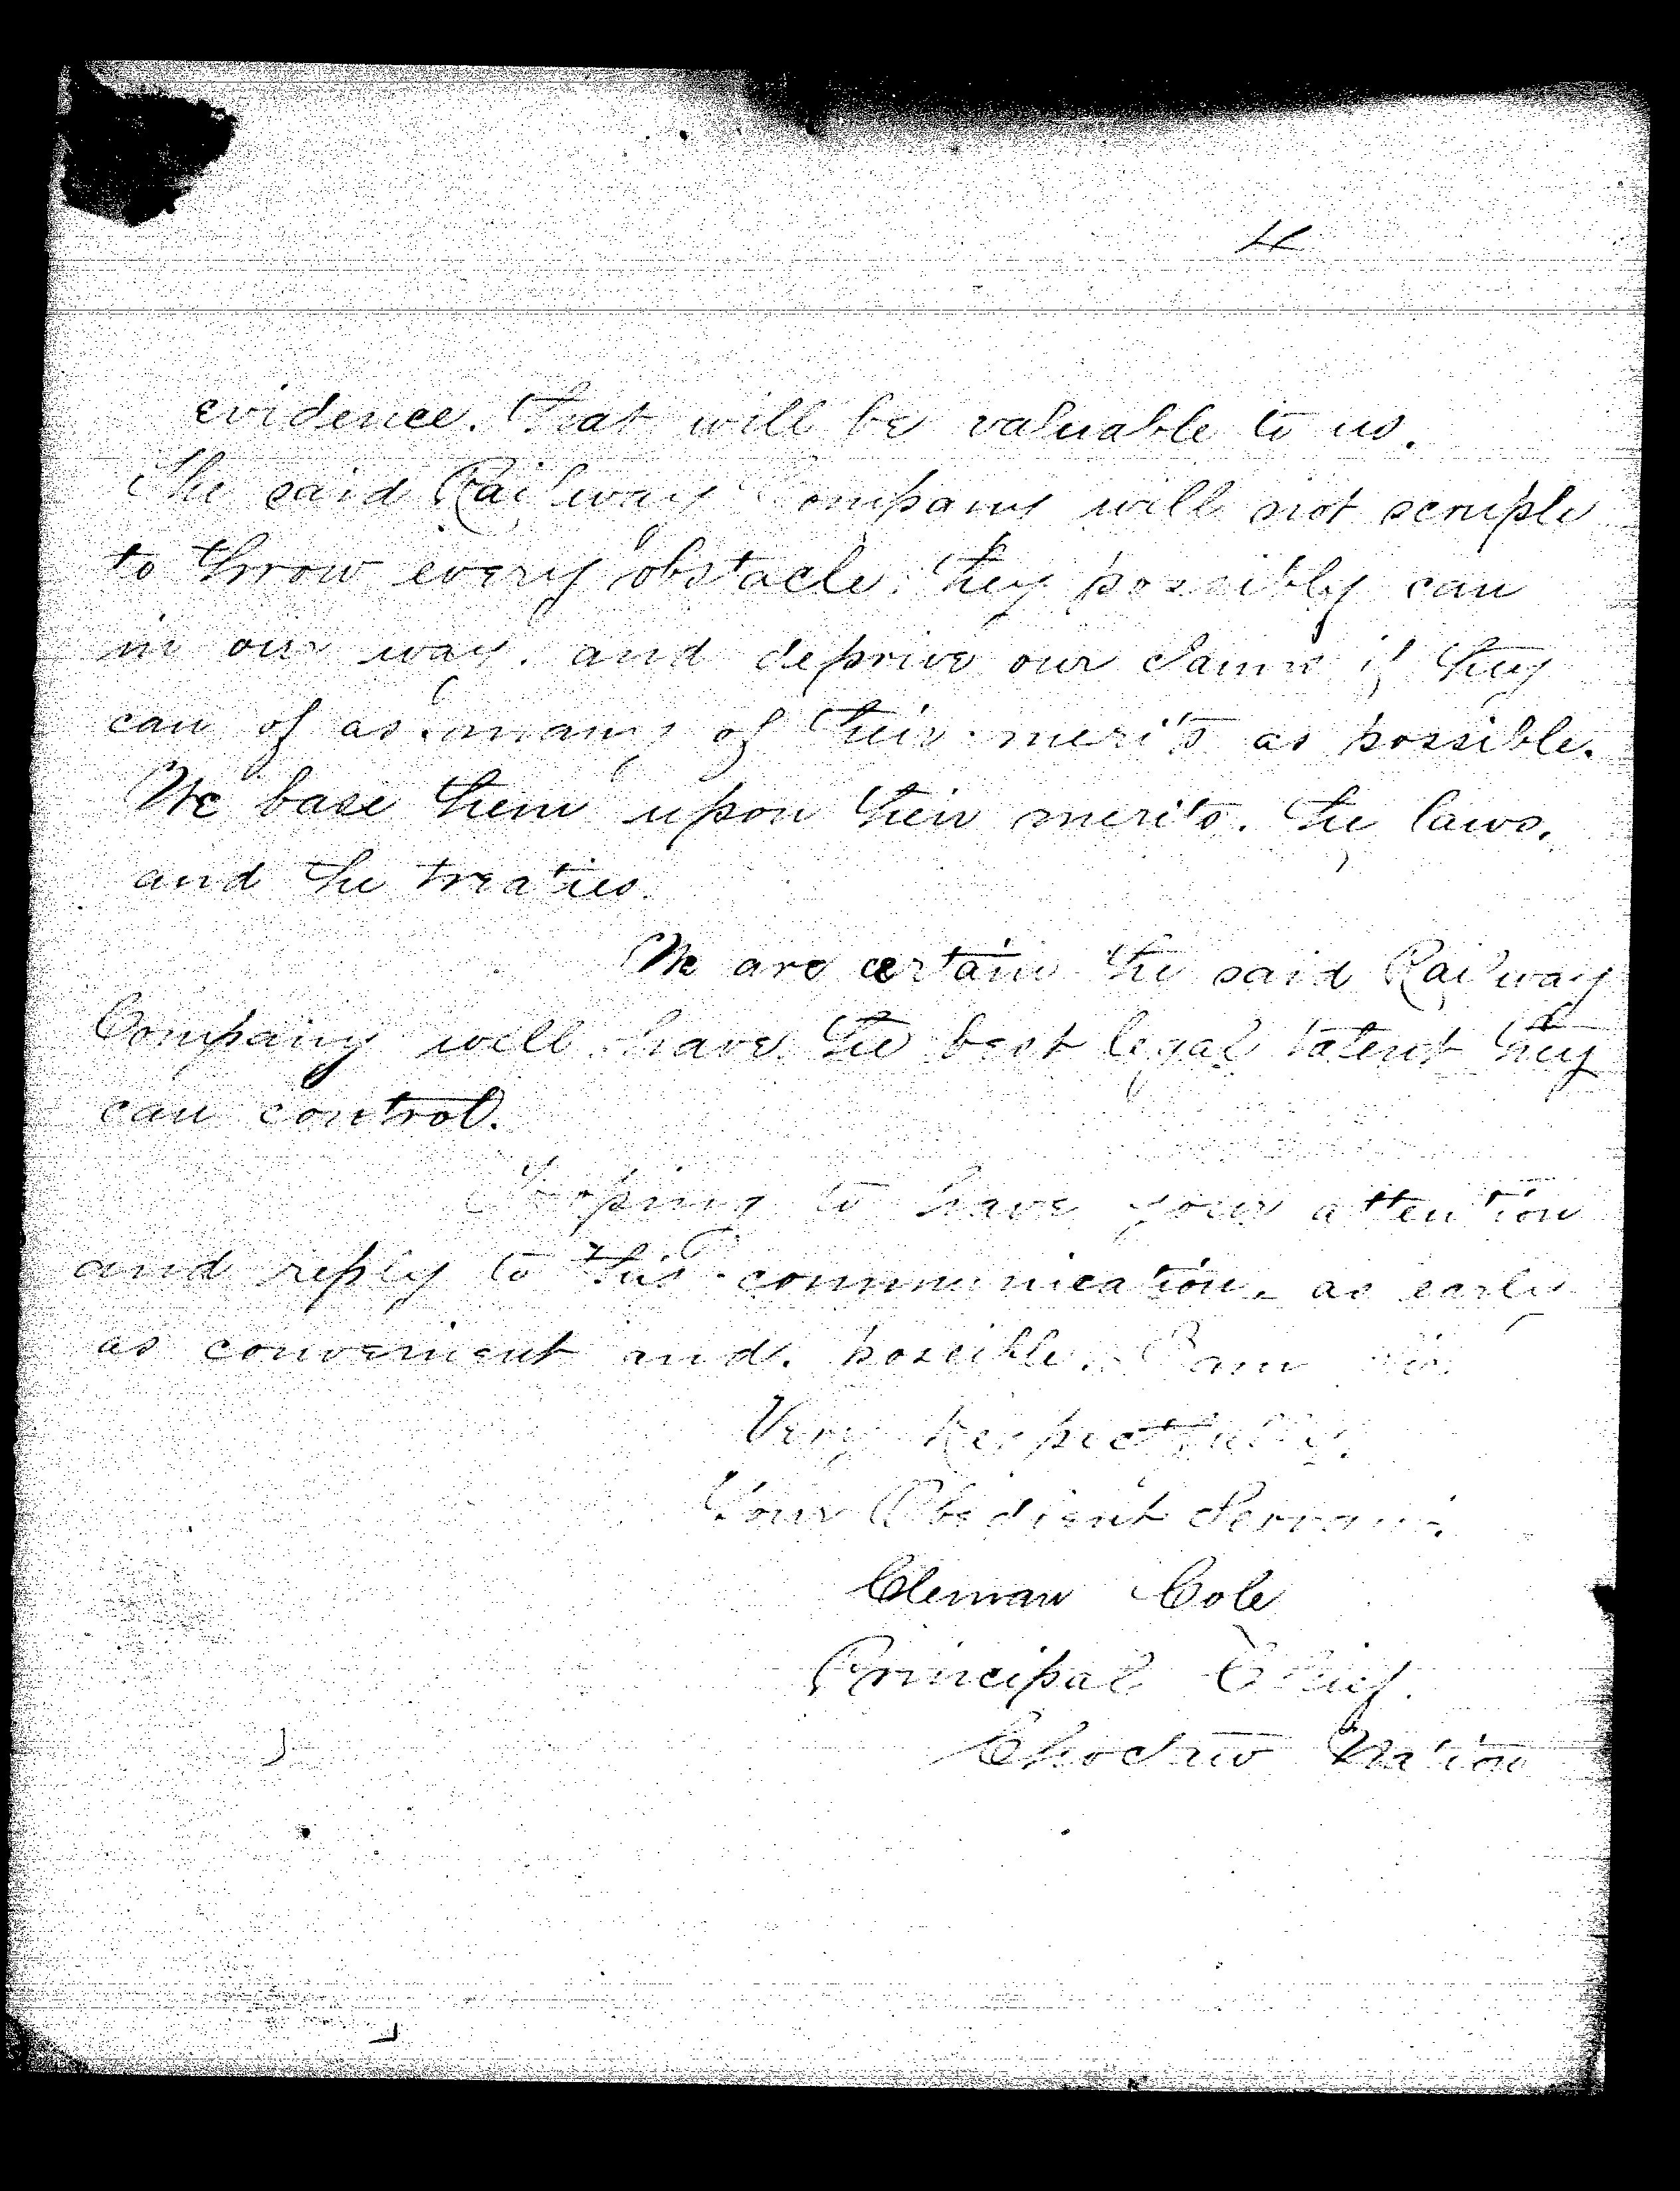 4
evidence. That will be valuable to us.
The said Railway Company will not scruple
to throw every obstacle. they possibly can
in our way. and deprive our claims if they
can of as many of their merits as possible.
We base them upon their merits. the laws.
and the treaties.
We are certain the said Railway
Company will have the best legal talent they
can control.
Hoping to have your attention
and reply to this communication. as early
as convenient and. possible. I am Sir.
Very Respectfully.
Your Obedient Servant.
Coleman Cole
Principal Chief.
Choctaw Nation